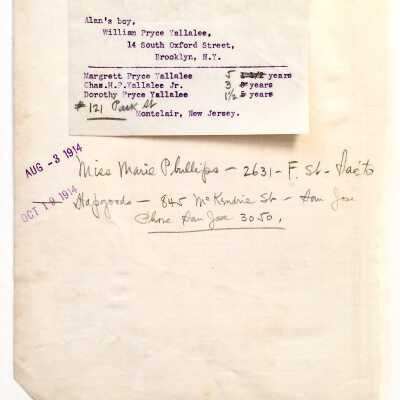 Alan's boy,
William Pryce Yallalee,
14 South Oxford Street,
Brooklyn, N.Y.
Margrett Pryce Yallalee 5 years
Chas.H.P.Yallalee Jr. 3 years
Dorothy Pryce Yallalee 1½ years
#121 Park St
Montclair, New Jersey.
AUG -3 1914
Miss Marie Phillips - 2631 - F. St - Sac'to
OCT 19 1914
Hapgoods - 845 McKendrie St - San Jose
Phone San Jose 3050.